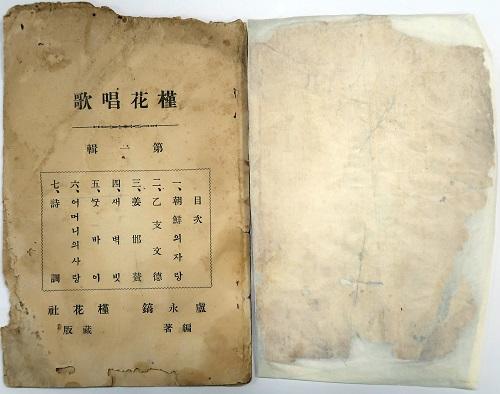 槿花唱歌
第一輯
目次
一、朝鮮의자랑
二、乙支文德
三、姜邯贊
四、새벽빗
五、바이
六、어머니의사랑
七、詩調
盧永鎬 槿花社
編著 藏版